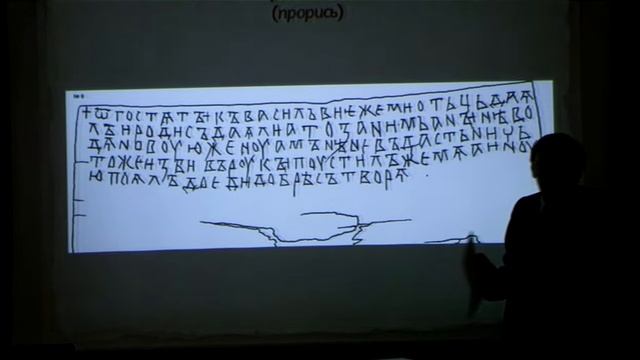 (прорись)
№ 9
+ѾГОСТѦТЪІКЪВАСИЛЬВИЕЖЕМИОТЬЦЬДАѦ
ЛЪИРОДИСЪДАѦЛИАТОЗАНИМЬАНЪІНѢВО
ДѦНОВОУЮЖЕНОУАМЪНѢНЕВЪДАСТЬНИЧЬ
ТОЖЕИЗБИВЪРОУКЪІПОУСТИЛЪЖЕМѦАИНОУ
ЮПОѦЛЪДОЕДИДОБРѢСЪТВОРѦ